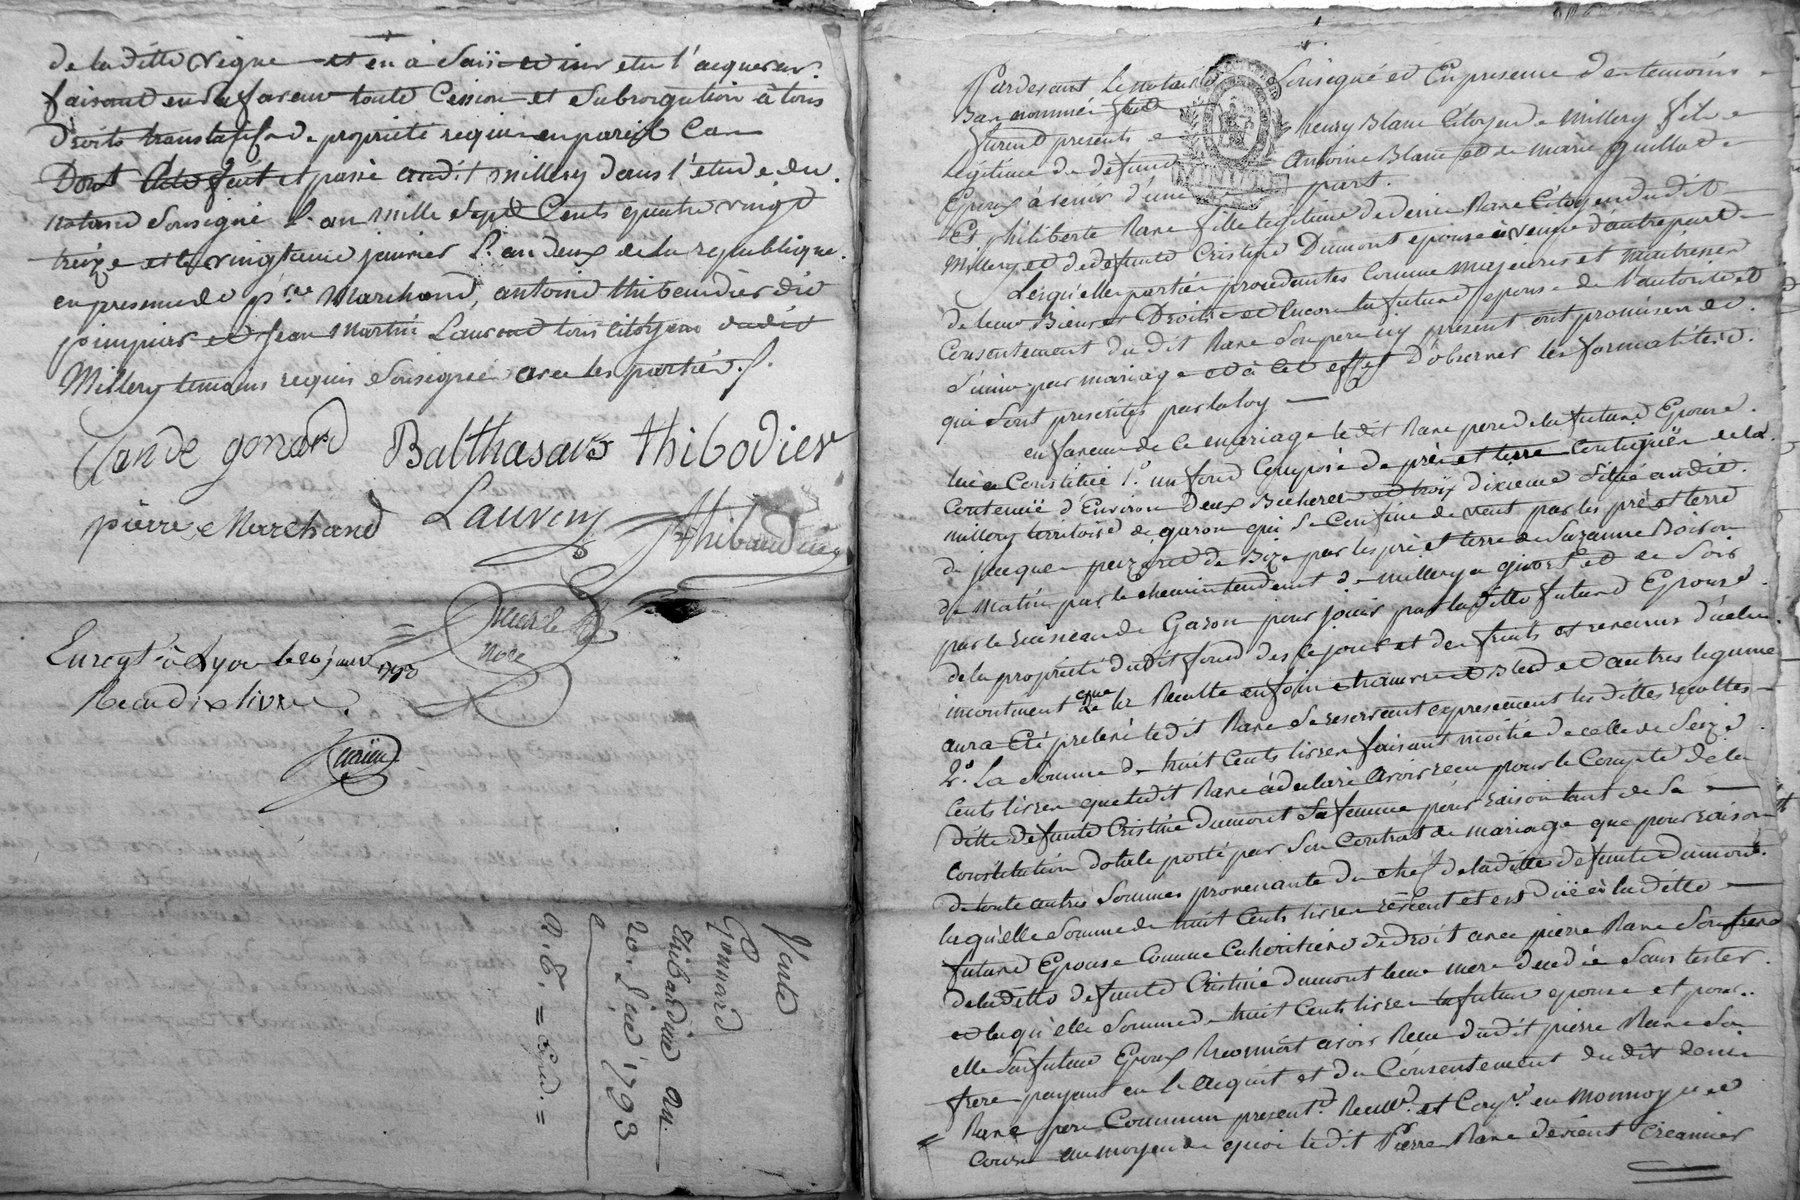 de la ditte vigne et en à saisi et investu l'acquereur.
faisant en sa faveur toute Cession et Subrogation à tous
droits translatif de propriété requis en pareil Cas
Dont Acte fait et passé audit millery dans l'étude du
notaire Soussigné l'an mille Sept Cents quatre vingt
treize et le vingtieme janvier l'an deux de la republique.
en presence de Marchand, antoine thibaudier dit
et jean Martin Laurend tous citoyens dudit
Millery temoins requis Soussignés avec les parties
Claude gonard Balthasard thibodier
pierre Marchand Laurent Thibaudier
Enregt. à Lyon le 20 janv. 1793
Recu dix livres
Vente
Gonnard
thibaudier au.
20. 1793
Pardevant le notaire Soussigné et En presence des temoins
Bas nommés
furent presents henry Blanc Citoyen de Millery fils
legitime de defunt Antoine Blanc et de marie guillot
Epoux à venir d'une part.
Et philiberte Rane fille legitime de denis Rane Citoyen dudit
Millery et de defunte Cristine Dumont epouse à venir d'autre part
Lesquelles parties procedantes Comme majeures et maitresses
de leurs Biens et Droits et encore la future epouse de l'autorité et
Consentement dudit Rane Son pere icy present ont promis de
S'unir par mariage et à Cet effet D'observer les formalités
qui Sont prescrites par la loy
en faveur de Ce mariage ledit Rane pere de la future Epouse
lui a Constitué 1.° un fond Composé de pré et terre Contigues de la
Contenüe d'Environ Deux Bicherées et trois dixieme Situé audit
millery territoire de garon qui Se Confine de vent par les pré et terre
de jacques de Bize par les pré et terre de Suzanne Boiron
de matin par le chemin tendant de millery a givors et de Soir
par le ruisseau de Garon pour jouir par laditte future Epouse
de la propriété dudit fond des Ce jour et des fruits et revenus d'icelui
incontinent que la Recolte en foin chanvre et Bled et autres legumes
aura Eté prelevé ledit Rane Se reservant expressement les dittes recoltes
2.° La Somme de huit Cents livres faisant moitié de celle de Seize
Cents livres que ledit Rane à declaré avoir recu pour le Compte de la
ditte defunte Cristine dumont Sa femme pour raison tant de Sa
Constitution dotale porté par Son Contrat de mariage que pour raison
de toute autres Sommes provenante du chef de laditte defunte Dumont
laquelle Somme de huit Cents livres revient et est düe à la ditte
future Epouse Comme Cohéritiere de droit avec pierre Rane Son frere
de laditte defunte Cristine dumont leur mere decedée Sans tester.
et laquelle Somme de huit Cents livres la future epouse et pour
elle Son futur Epoux Reconnoit avoir Recu dudit pierre Rane Son
frere payant en l'acquit et du Consentement dudit denis
Rane pere Commun present en Monnoye de
Cours au moyen de quoi ledit Pierre Rane devient Créancier